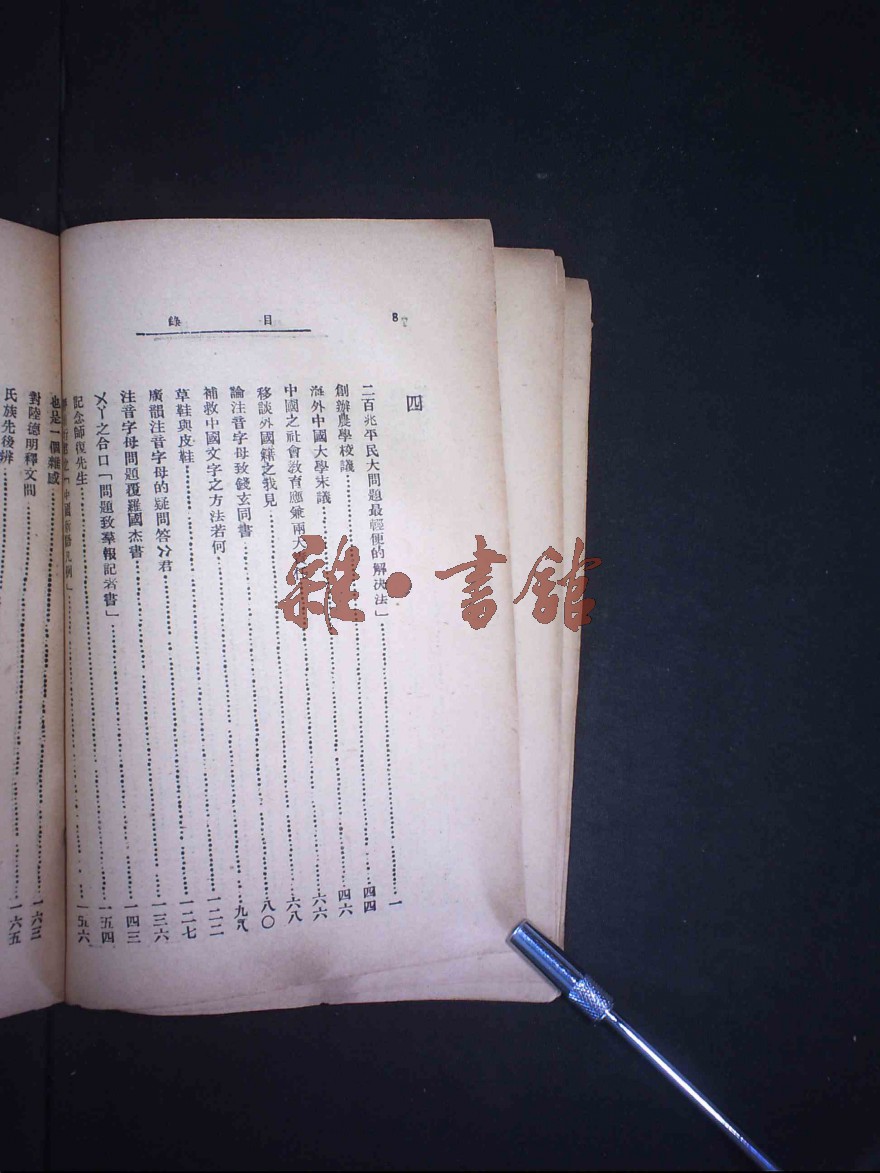 8
目錄
四
二百兆平民大問題最輕便的解決法」……一
創辦農學校議……四四
海外中國大學末議……四六
中國之社會教育應兼兩大……六六
移談外國籍之我見……六八
論注音字母致錢玄同書……八〇
補救中國文字之方法若何……九八
草鞋與皮鞋……一二二
廣韻注音字母的疑問答公君……一二七
注音字母問題覆羅國杰書……一三六
ㄨㄧ之合口「問題致羣報記者書」……一四三
記念師復先生……一五四
……一五六
也是一個雜感
對陸德明釋文問……一六三
民族先後辨……一六五
雜·書館